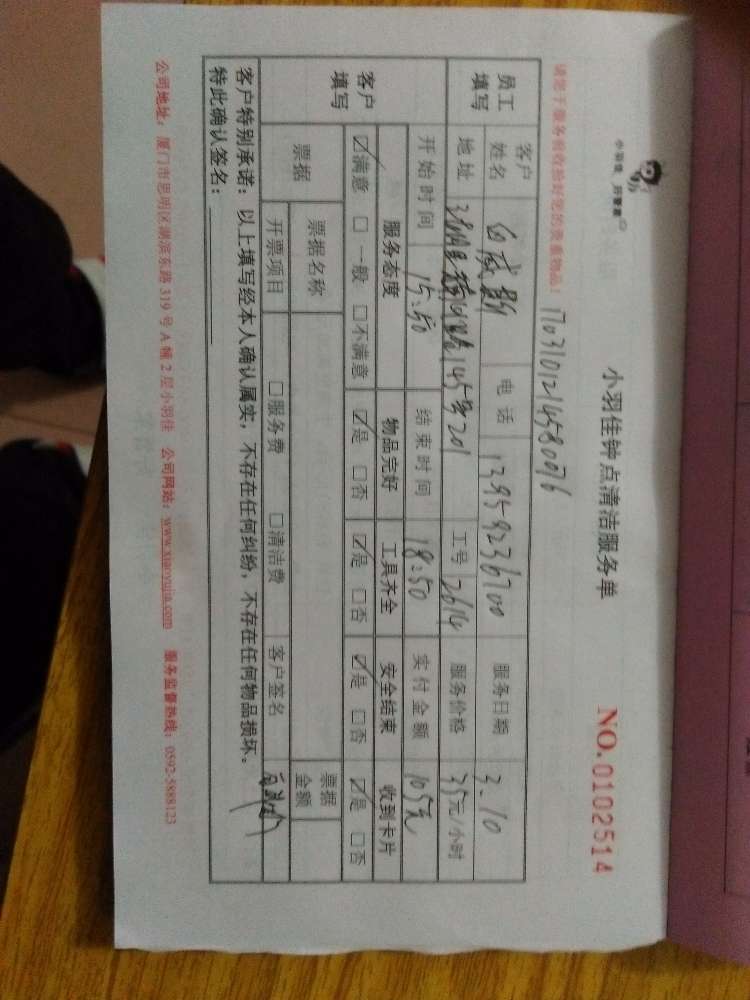 小羽佳 好管家
小羽佳钟点清洁服务单
NO. 0102514
请您于服务前收拾好您的贵重物品!
1703101214580076
员工填写 客户姓名 白 电话 13959236700 服务日期 3.10
地址 145号201 工号 2614 服务价格 35元/小时
客户填写 开始时间 15:50 结束时间 18:50 实付金额 105元
服务态度 物品完好 工具齐全 安全结束 收到卡片
☑满意 □一般 □不满意 ☑是 □否 ☑是 □否 ☑是 □否 ☑是 □否
票据 票据名称 票据金额
开票项目 □服务费 □清洁费 客户签名
客户特别承诺:以上填写经本人确认属实,不存在任何纠纷,不存在任何物品损坏。
特此确认签名:
公司地址:厦门市思明区湖滨东路 319 号 A 幢 2 层小羽佳 公司网站:www.xiaoyujia.com 服务监督热线:0592-5888123